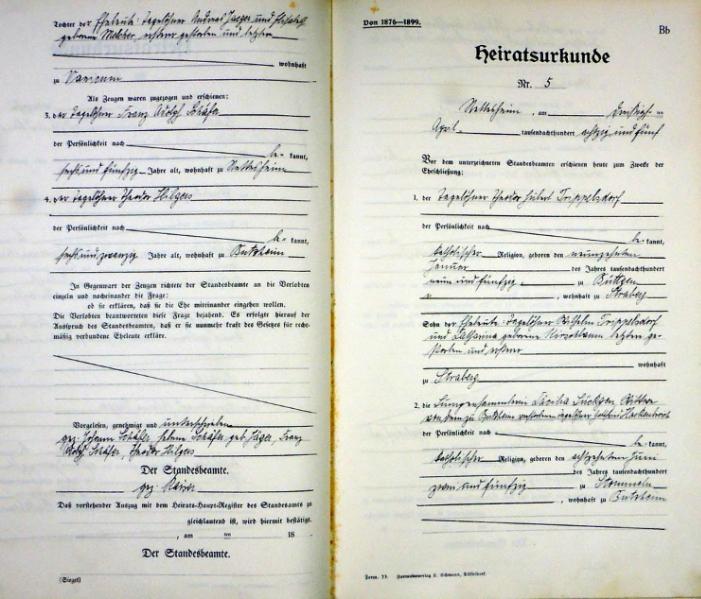 Tochter der Eheleute: Tagelöhner Andreas Jaeger und Elisabeth
geborene Melcher, erstere gestorben und letzterer
wohnhaft
zu
Als Zeugen waren zugezogen und erschienen:
3. der Tagelöhner Franz Adolf Schäfer
der Persönlichkeit nach
be- kannt,
sechs und fünfzig Jahre alt, wohnhaft zu Nettesheim
4. der Tagelöhner Theodor Hilgers
der Persönlichkeit nach
be- kannt,
sechs und zwanzig Jahre alt, wohnhaft zu Butzheim
In Gegenwart der Zeugen richtete der Standesbeamte an die Verlobten
einzeln und nacheinander die Frage:
ob sie erklären, daß sie die Ehe miteinander eingehen wollen.
Die Verlobten beantworteten diese Frage bejahend. Es erfolgte hierauf der
Ausspruch des Standesbeamten, daß er sie nunmehr kraft des Gesetzes für recht-
mäßig verbundene Eheleute erkläre.
Vorgelesen, genehmigt und unterschrieben
gez: Johann Schäfer, Helena Schäfer geb. Jäger, Franz
Adolf Schäfer, Theodor Hilgers
Der Standesbeamte.
gez:
Daß vorstehender Auszug mit dem Heirats-Haupt-Register des Standesamts zu
gleichlautend ist, wird hiermit bestätigt.
, am ten 18
Der Standesbeamte.
(Siegel)
Von 1876—1899.
Bb
Heiratsurkunde
Nr. 5
Nettesheim, am dreißig ten
April tausendachthundert achtzig und fünf
Vor dem unterzeichneten Standesbeamten erschienen heute zum Zwecke der
Eheschließung:
1. der Tagelöhner Theodor Hubert Trippelsdorf
der Persönlichkeit nach
be- kannt,
katholischer Religion, geboren den neunzehnten
Januar des Jahres tausendachthundert
neun und fünfzig zu Büttgen
, wohnhaft zu Straberg
Sohn der Eheleute: Tagelöhner Wilhelm Trippelsdorf
und Catharina geborene letztere ge-
storben und ersterer
wohnhaft
zu Straberg
2. die Lumpensammlerin Cäcilia Lückgen, Wittwe
von dem zu Butzheim verstorbenen Tagelöhner Hackenbroch
der Persönlichkeit nach
be- kannt,
katholischer Religion, geboren den achtzehnten Juni
des Jahres tausendachthundert
zwei und fünfzig zu Stommeln
, wohnhaft zu Butzheim
Form. 73.